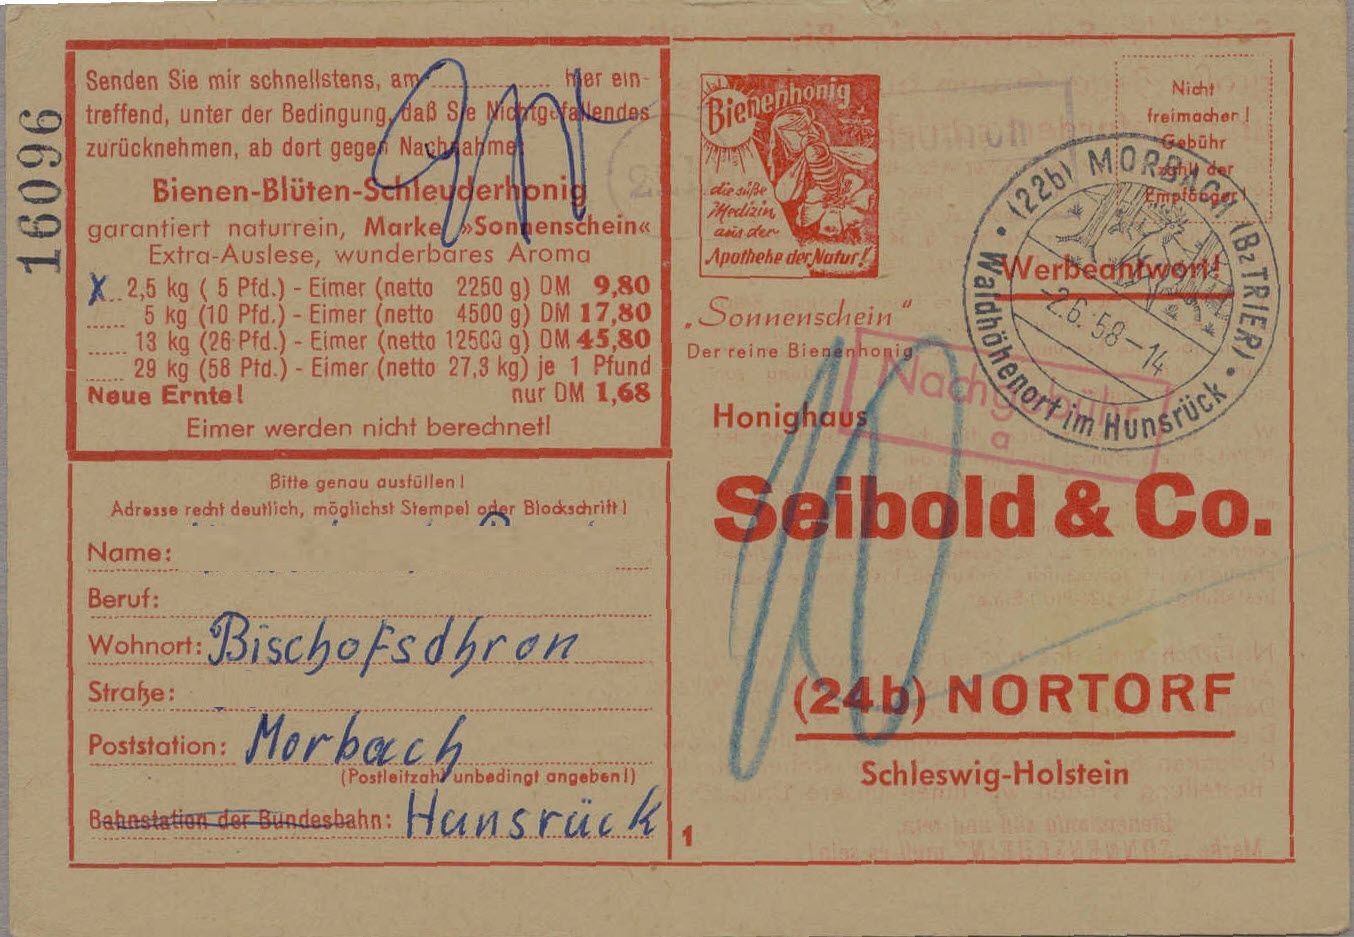 16096
Senden Sie mir schnellstens, am ............ hier ein-
treffend, unter der Bedingung, daß Sie Nichtgefallendes
zurücknehmen, ab dort gegen Nachnahme:
Bienen-Blüten-Schleuderhonig
garantiert naturrein, Marke »Sonnenschein«
Extra-Auslese, wunderbares Aroma
X 2,5 kg ( 5 Pfd.) - Eimer (netto 2250 g) DM 9,80
..... 5 kg (10 Pfd.) - Eimer (netto 4500 g) DM 17,80
..... 13 kg (26 Pfd.) - Eimer (netto 12500 g) DM 45,80
..... 29 kg (58 Pfd.) - Eimer (netto 27,3 kg) je 1 Pfund
Neue Ernte! nur DM 1,68
Eimer werden nicht berechnet!
Bitte genau ausfüllen!
Adresse recht deutlich, möglichst Stempel oder Blockschrift!
Name:
Beruf:
Wohnort: Bischofsdhron
Straße:
Poststation: Morbach
(Postleitzahl unbedingt angeben!)
Bahnstation der Bundesbahn: Hunsrück
Bienenhonig
die süße
Medizin
aus der
Apotheke der Natur!
„Sonnenschein"
Der reine Bienenhonig
Nicht
freimachen!
Gebühr
zahlt der
Empfänger
(22b) MORBACH (Bz TRIER)
-2.6.58-14
Waldhöhenort im Hunsrück
Werbeantwort!
Nachgebühr
a
10
Honighaus
Seibold & Co.
(24b) NORTORF
Schleswig-Holstein
1